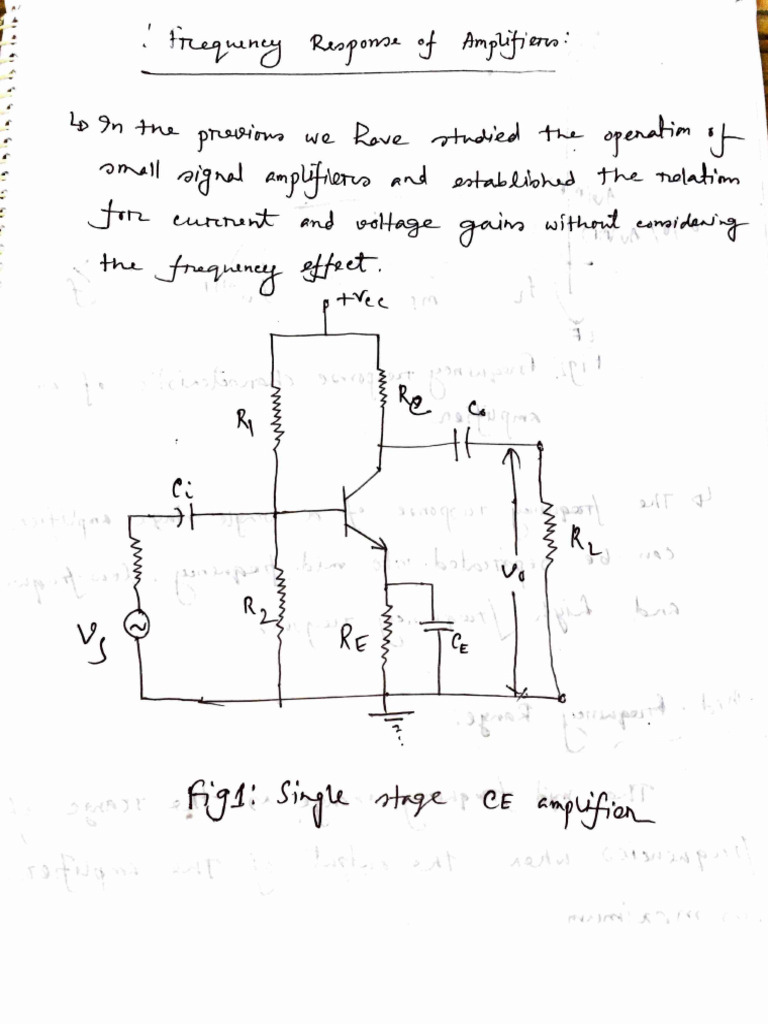 Frequency Response of Amplifiers:
↳ In the previous we have studied the operation of
small signal amplifiers and established the relation
for current and voltage gains without considering
the frequency effect.
+Vcc
R1
RC
Co
Ci
RL
Vo
R2
VS
RE
CE
Fig1: Single stage CE amplifier